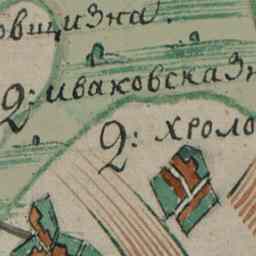 овщизна.
2: иваковская
2: хроло